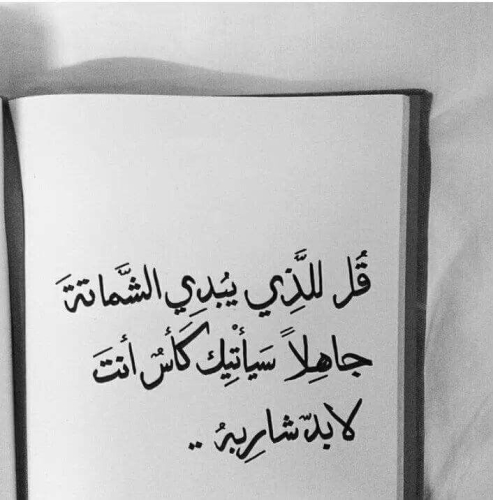 قُل للَّذِي يُبدِي الشَّماتةَ
جاهِلاً سَيأتِيك كَأسٌ أنتَ
لابدّ شارِبهُ ..